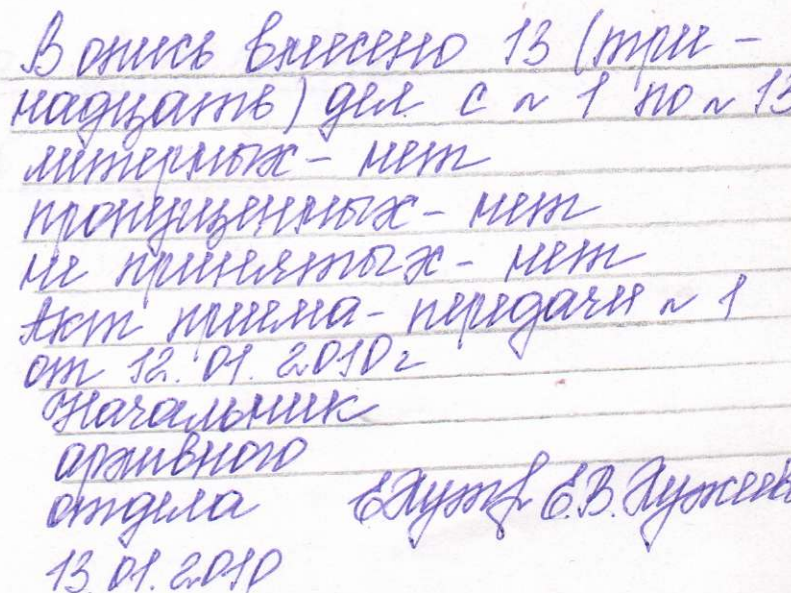 В опись внесено 13 (три-
надцать) дел с № 1 по № 13
литерных - нет
пропущенных - нет
не принятых - нет
Акт приема-передачи № 1
от 12.01.2010 г
Начальник
архивного
отдела Е.В.
13.01.2010